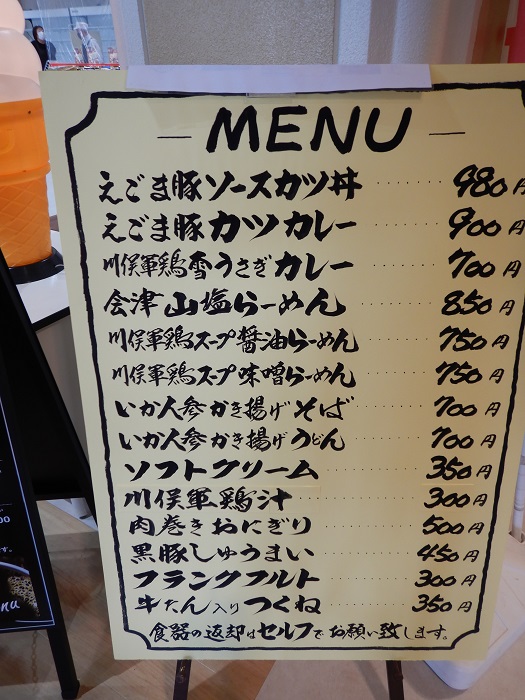 MENU
えごま豚ソースカツ丼 980円
えごま豚カツカレー 900円
川俣軍鶏雪うさぎカレー 700円
会津山塩らーめん 850円
川俣軍鶏スープ醬油らーめん 750円
川俣軍鶏スープ味噌らーめん 750円
いか人参かき揚げそば 700円
いか人参かき揚げうどん 700円
ソフトクリーム 350円
川俣軍鶏汁 300円
肉巻きおにぎり 500円
黒豚しゅうまい 450円
フランクフルト 300円
牛たん入りつくね 350円
食器の返却はセルフでお願い致します。